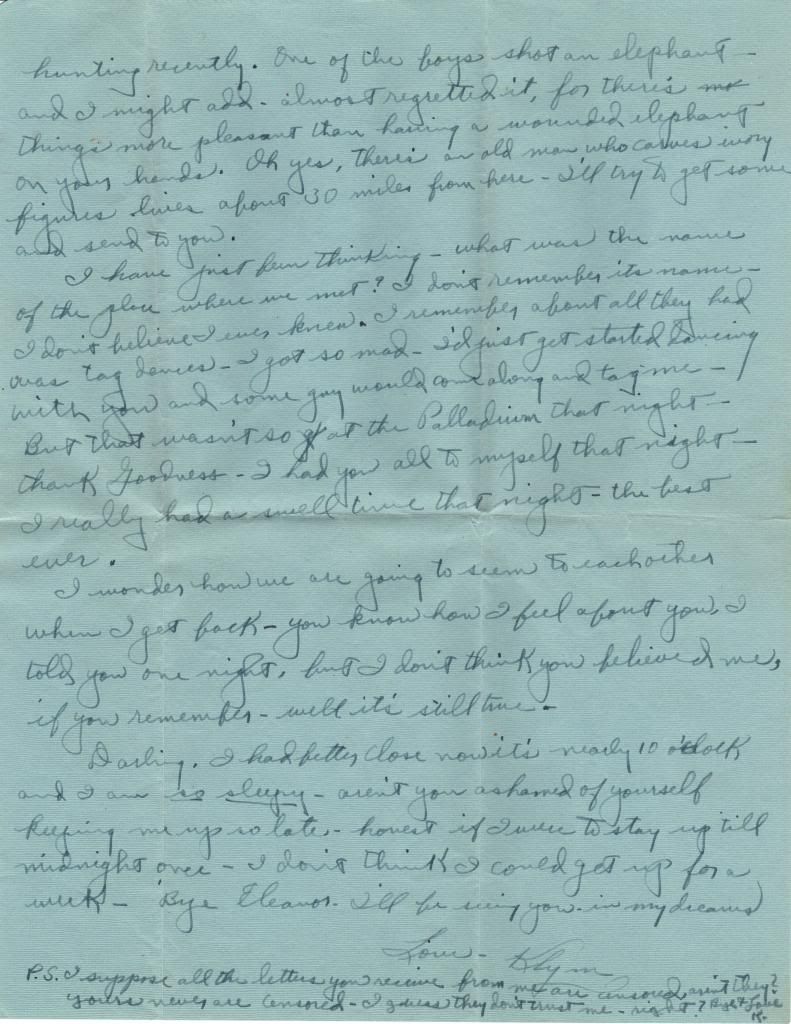 hunting recently. One of the boys shot an elephant -
and I might add - almost regretted it, for there's
things more pleasant than having a wounded elephant
on your hands. Oh yes, there's an old man who carves ivory
figures lives about 30 miles from here - I'll try to get some
and send to you.
I have just been thinking - what was the name
of the place where we met? I don't remember its name -
I don't believe I ever knew. I remember about all they had
was tag dances - I got so mad - I'd just get started dancing
with you and some guy would come along and tag me -
But that wasn't so at the Palladium that night -
thank Goodness - I had you all to myself that night -
I really had a swell time that night - the best
ever.
I wonder how we are going to seem to each other
when I get back - you know how I feel about you, I
told you one night, but I don't think you believed me,
if you remember - well it's still true -
Darling, I had better close now it's nearly 10 o'clock
and I am so sleepy - aren't you ashamed of yourself
keeping me up so late - honest if I were to stay up till
midnight once - I don't think I could get up for a
week - 'Bye Eleanor. I'll be seeing you - in my dreams
Love -
P.S. I suppose all the letters you receive from me are censored, aren't they?
Yours never are censored - I guess they don't trust me - right? Love
K.